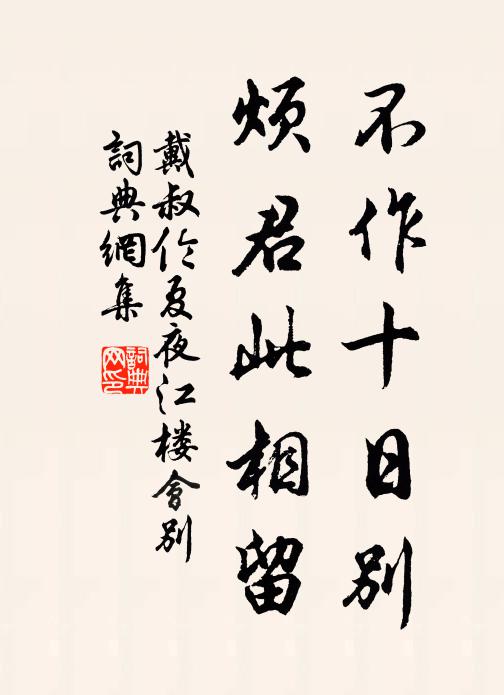 不作十日别
烦君此相留
戴叔伦夏夜江楼會别
詞典網集
詞典網印